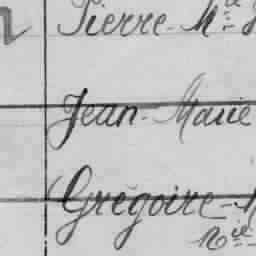 Pierre-Mie
Jean-Marie
Grégoire-
Nie-